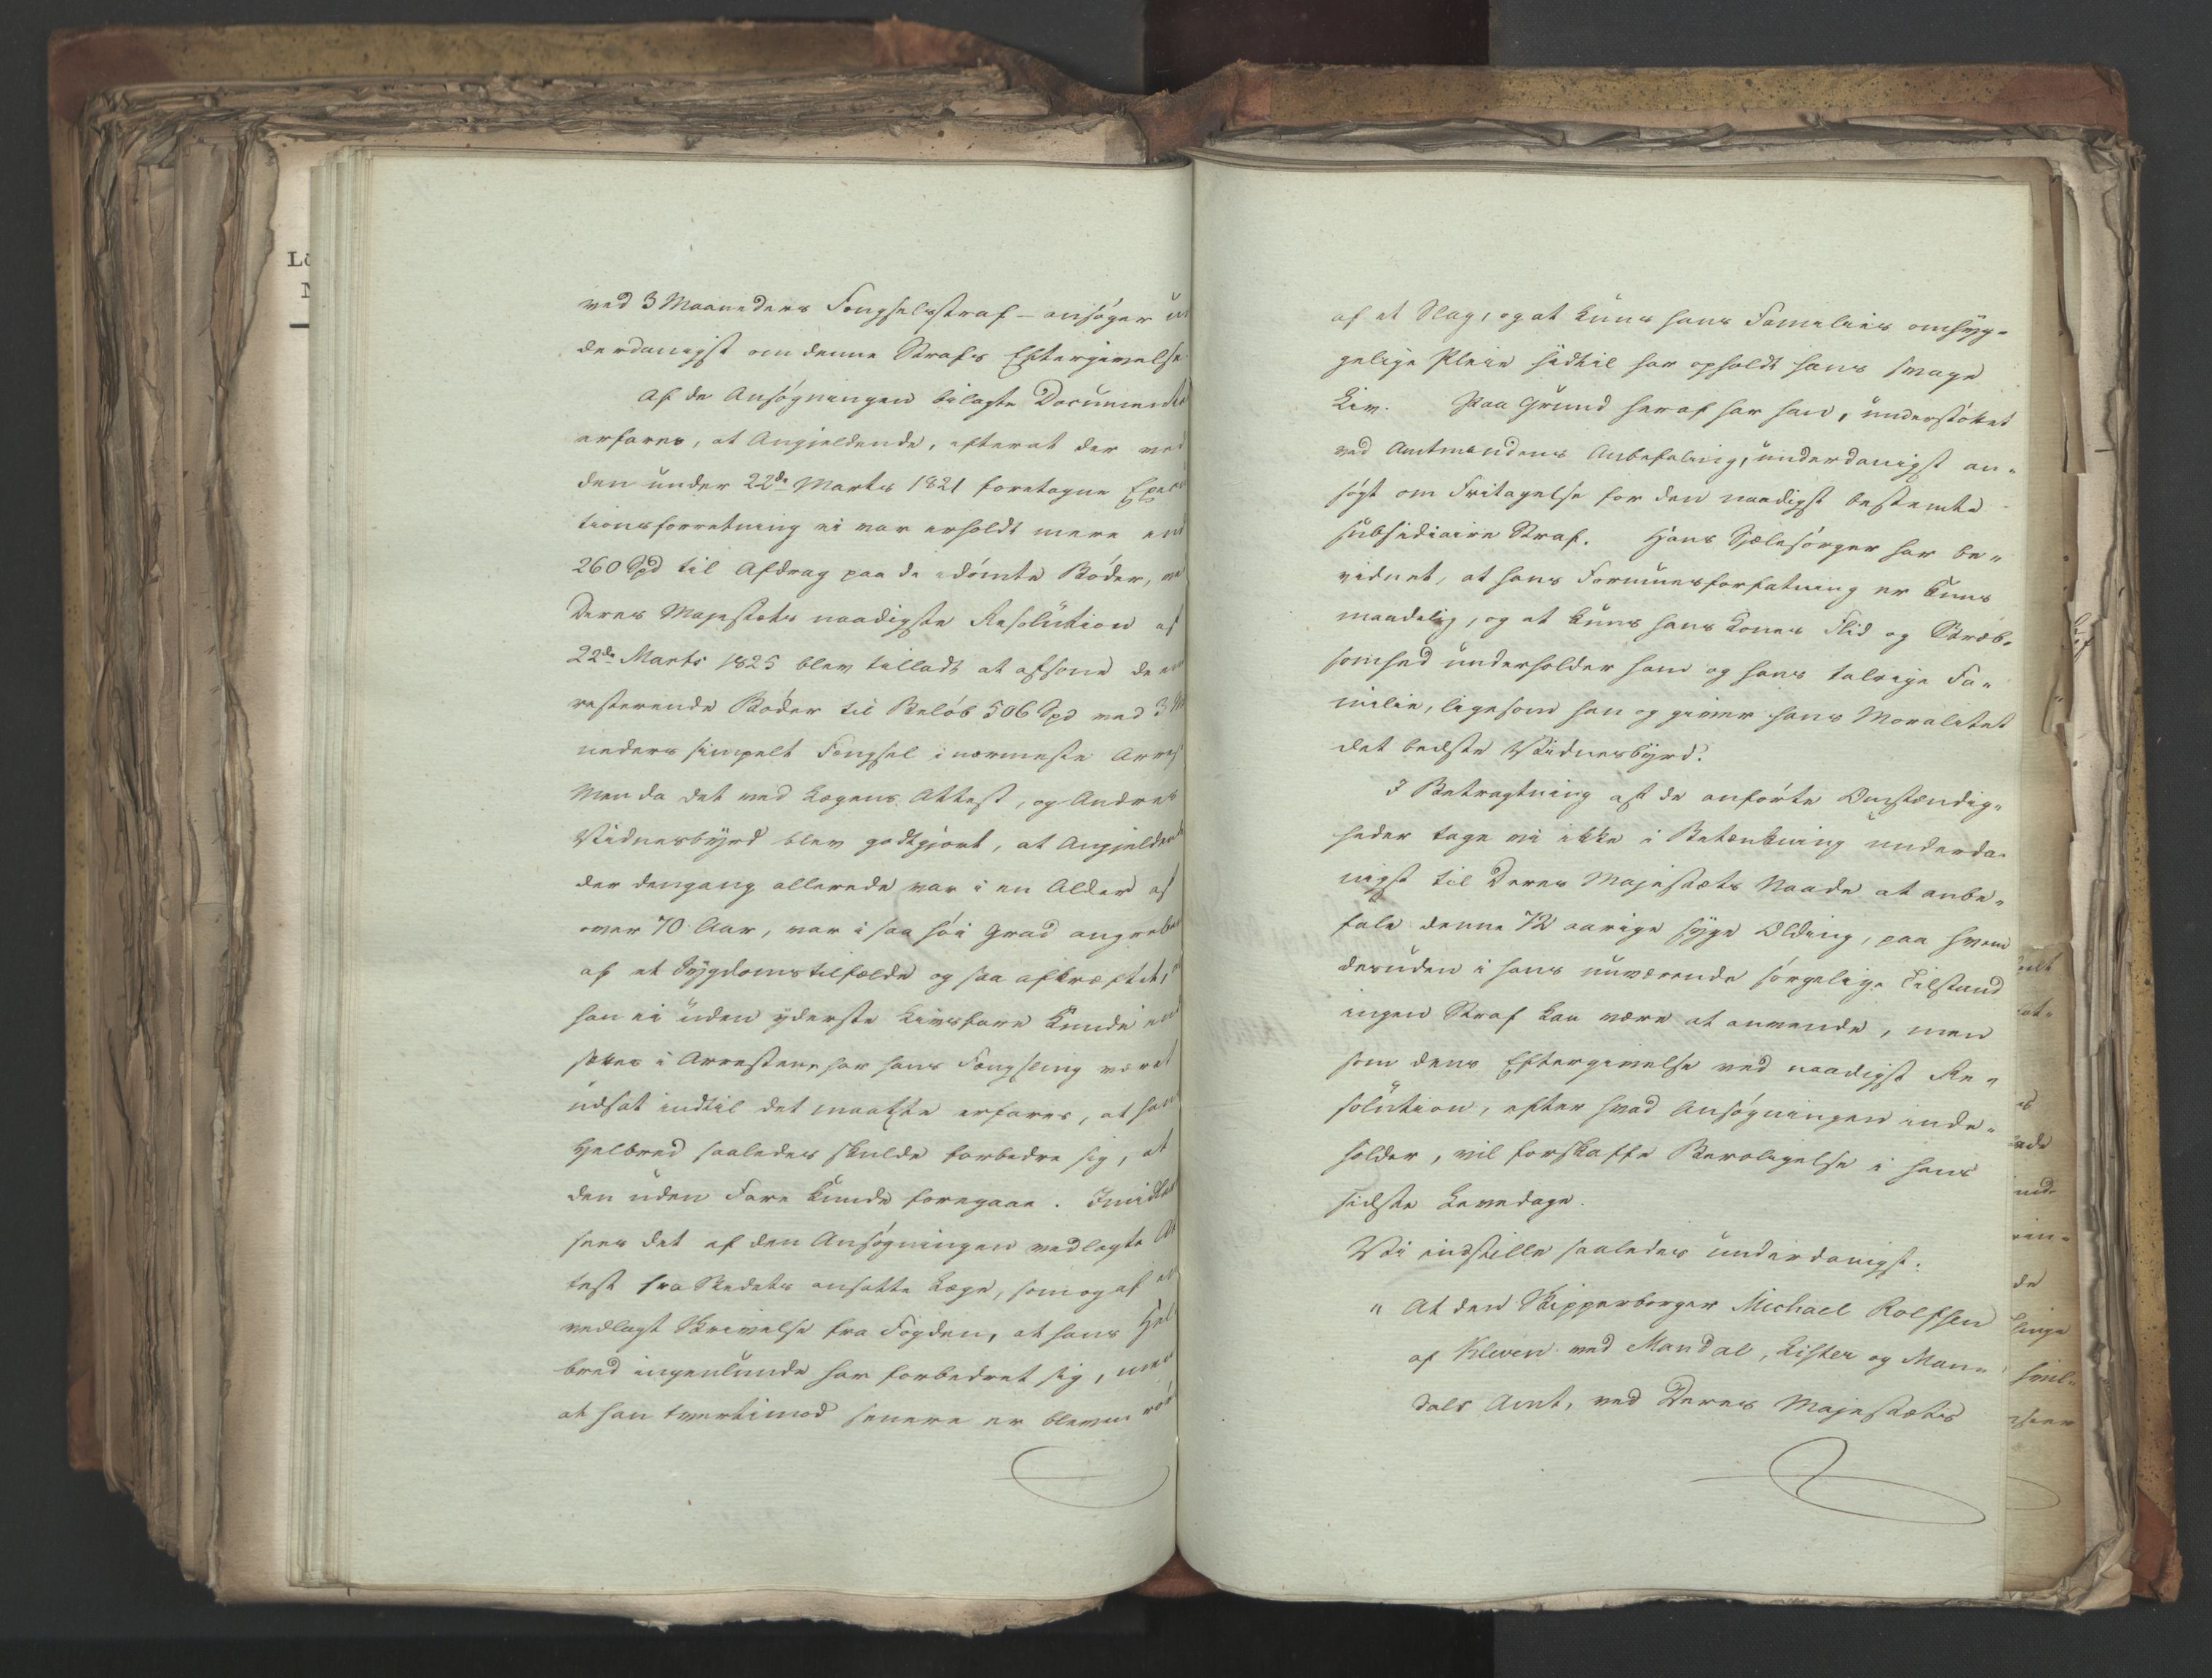 ved 3 Maaneders Fængselsstraf – ansøger un
derdanigst om denne Strafs Eftergivelse.
Af de Ansøgningen bilagte Documente
erfares, at Angjeldende, efterat der ved
den under 22de Marts 1821 foretagne Execu
tionsforretning ei var erholdt mere end
260 Spd til Afdrag paa de idømte Bøder, ve
Deres Majestæts naadigste Resolution af
22de Marts 1825 blev tilladt at afsone de en
resterende Bøder til Beløb 506 Spd med 3 M
neders simpelt Fængsel i nærmeste Arrest
Men da det ved Lægens Attest, og Andres
Vidnesbyrd blev godtgjort, at Angjeldende
der dengang allerede var i en Alder af
over 70 Aar, var i saa høi Grad angreben
af et Sygdomstilfælde og saa afkræftet,
han ei uden yderste Livsfare kunde ind
sættes i Arresten, har hans Fængsling været
udsat indtil det maatte erfares, at hans
Helbred saaledes skulde forbedre sig, at
den uden Fare kunde foregaae. Imidler
sees det af den Ansøgningen vedlagte At
test fra Stedets ansatte Læge, som og af en
vedlagt Skrivelse fra Fogden, at hans Hel
bred ingenlunde har forbedret sig, men
at han tvertimod senere er bleven rør
af et Slag, og at kuns hans Families omhyg-
gelige Pleie hidtil har opholdt hans svage
Liv. Paa Grund heraf har han, understøttet
ved Amtmandens Anbefaling, underdanigst an-
søgt om Fritagelse for den naadigst bestemte
subsidiaire Straf. Hans Sjælesørger har be-
vidnet, at hans Formuesforfatning er kuns
maadelig, og at kuns hans Kones Flid og Stræb-
somhed underholder ham og hans talrige Fa-
milie, ligesom han og giver hans Moralitet
det bedste Vidnesbyrd.
I Betragtning af de anførte Omstændig-
heder tage vi ikke i Betænkning underda-
nigst til Deres Majestæts Naade at anbe-
fale denne 72 aarige syge Olding, paa hvem
desuden i hans nuværende sørgelige Tilstand
ingen Straf kan være at anvende, men
som dens Eftergivelse ved naadigst Re-
solution, efter hvad Ansøgningen inde-
holder, vil forskaffe Beroligelse i hans
sidste Levedage.
Vi indstille saaledes underdanigst:
" At den Skipperborger Michael Rolfsen
af Kleven ved Mandal, Lister og Man-
dals Amt, ved Deres Majestæts